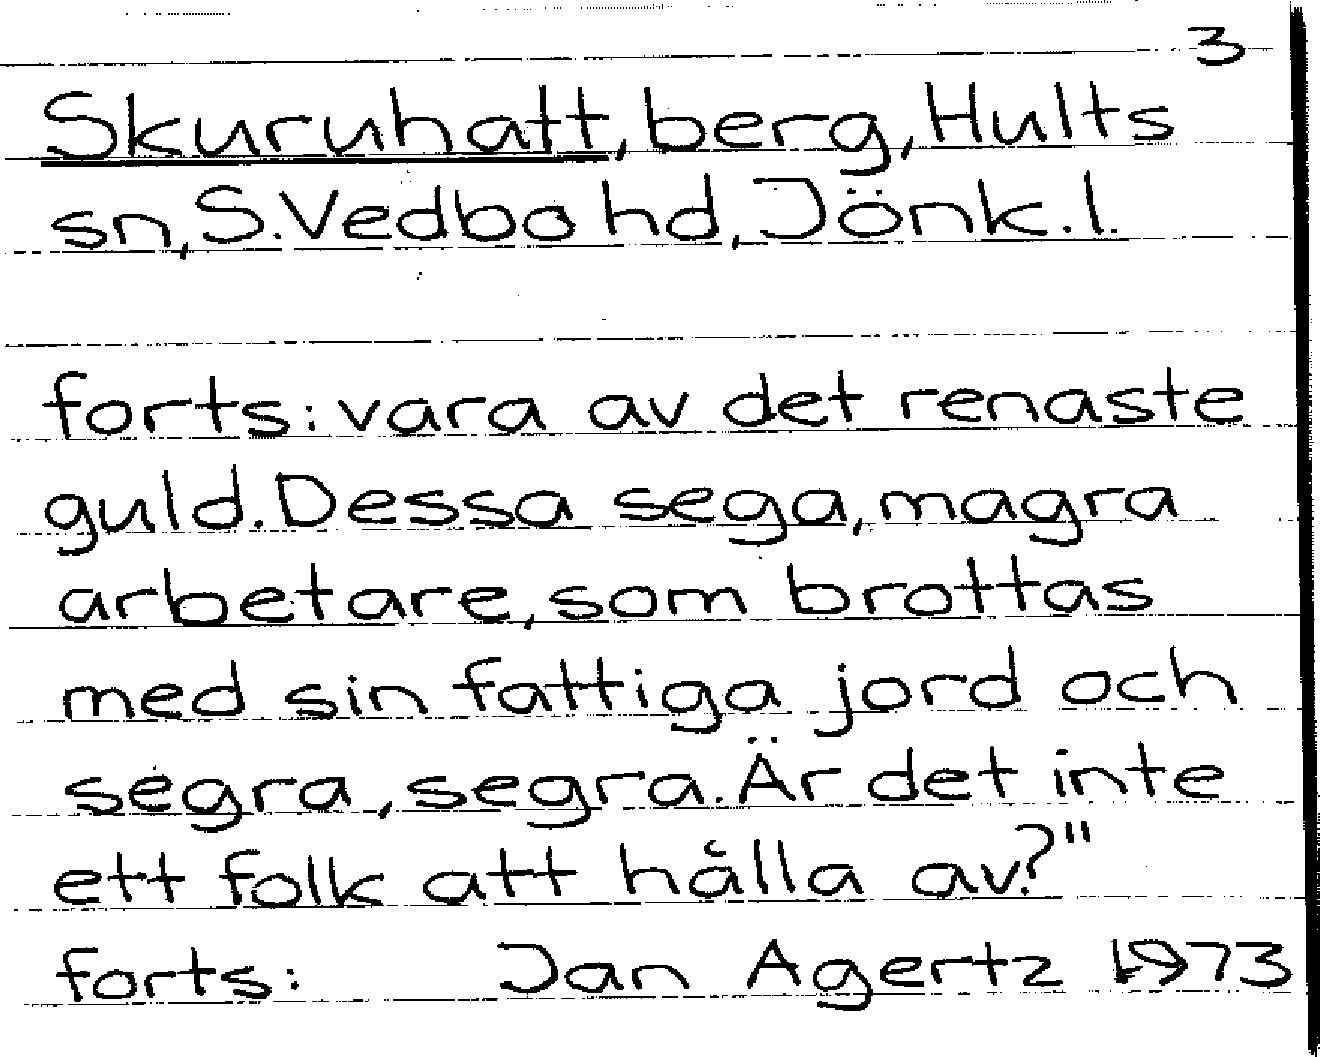 3
Skuruhatt, berg, Hults
sn, S. Vedbo hd, Jönk. l.
forts: vara av det renaste
guld. Dessa sega, magra
arbetare, som brottas
med sin fattiga jord och
segra, segra. Är det inte
ett folk att hålla av?"
forts: Jan Agertz 1973